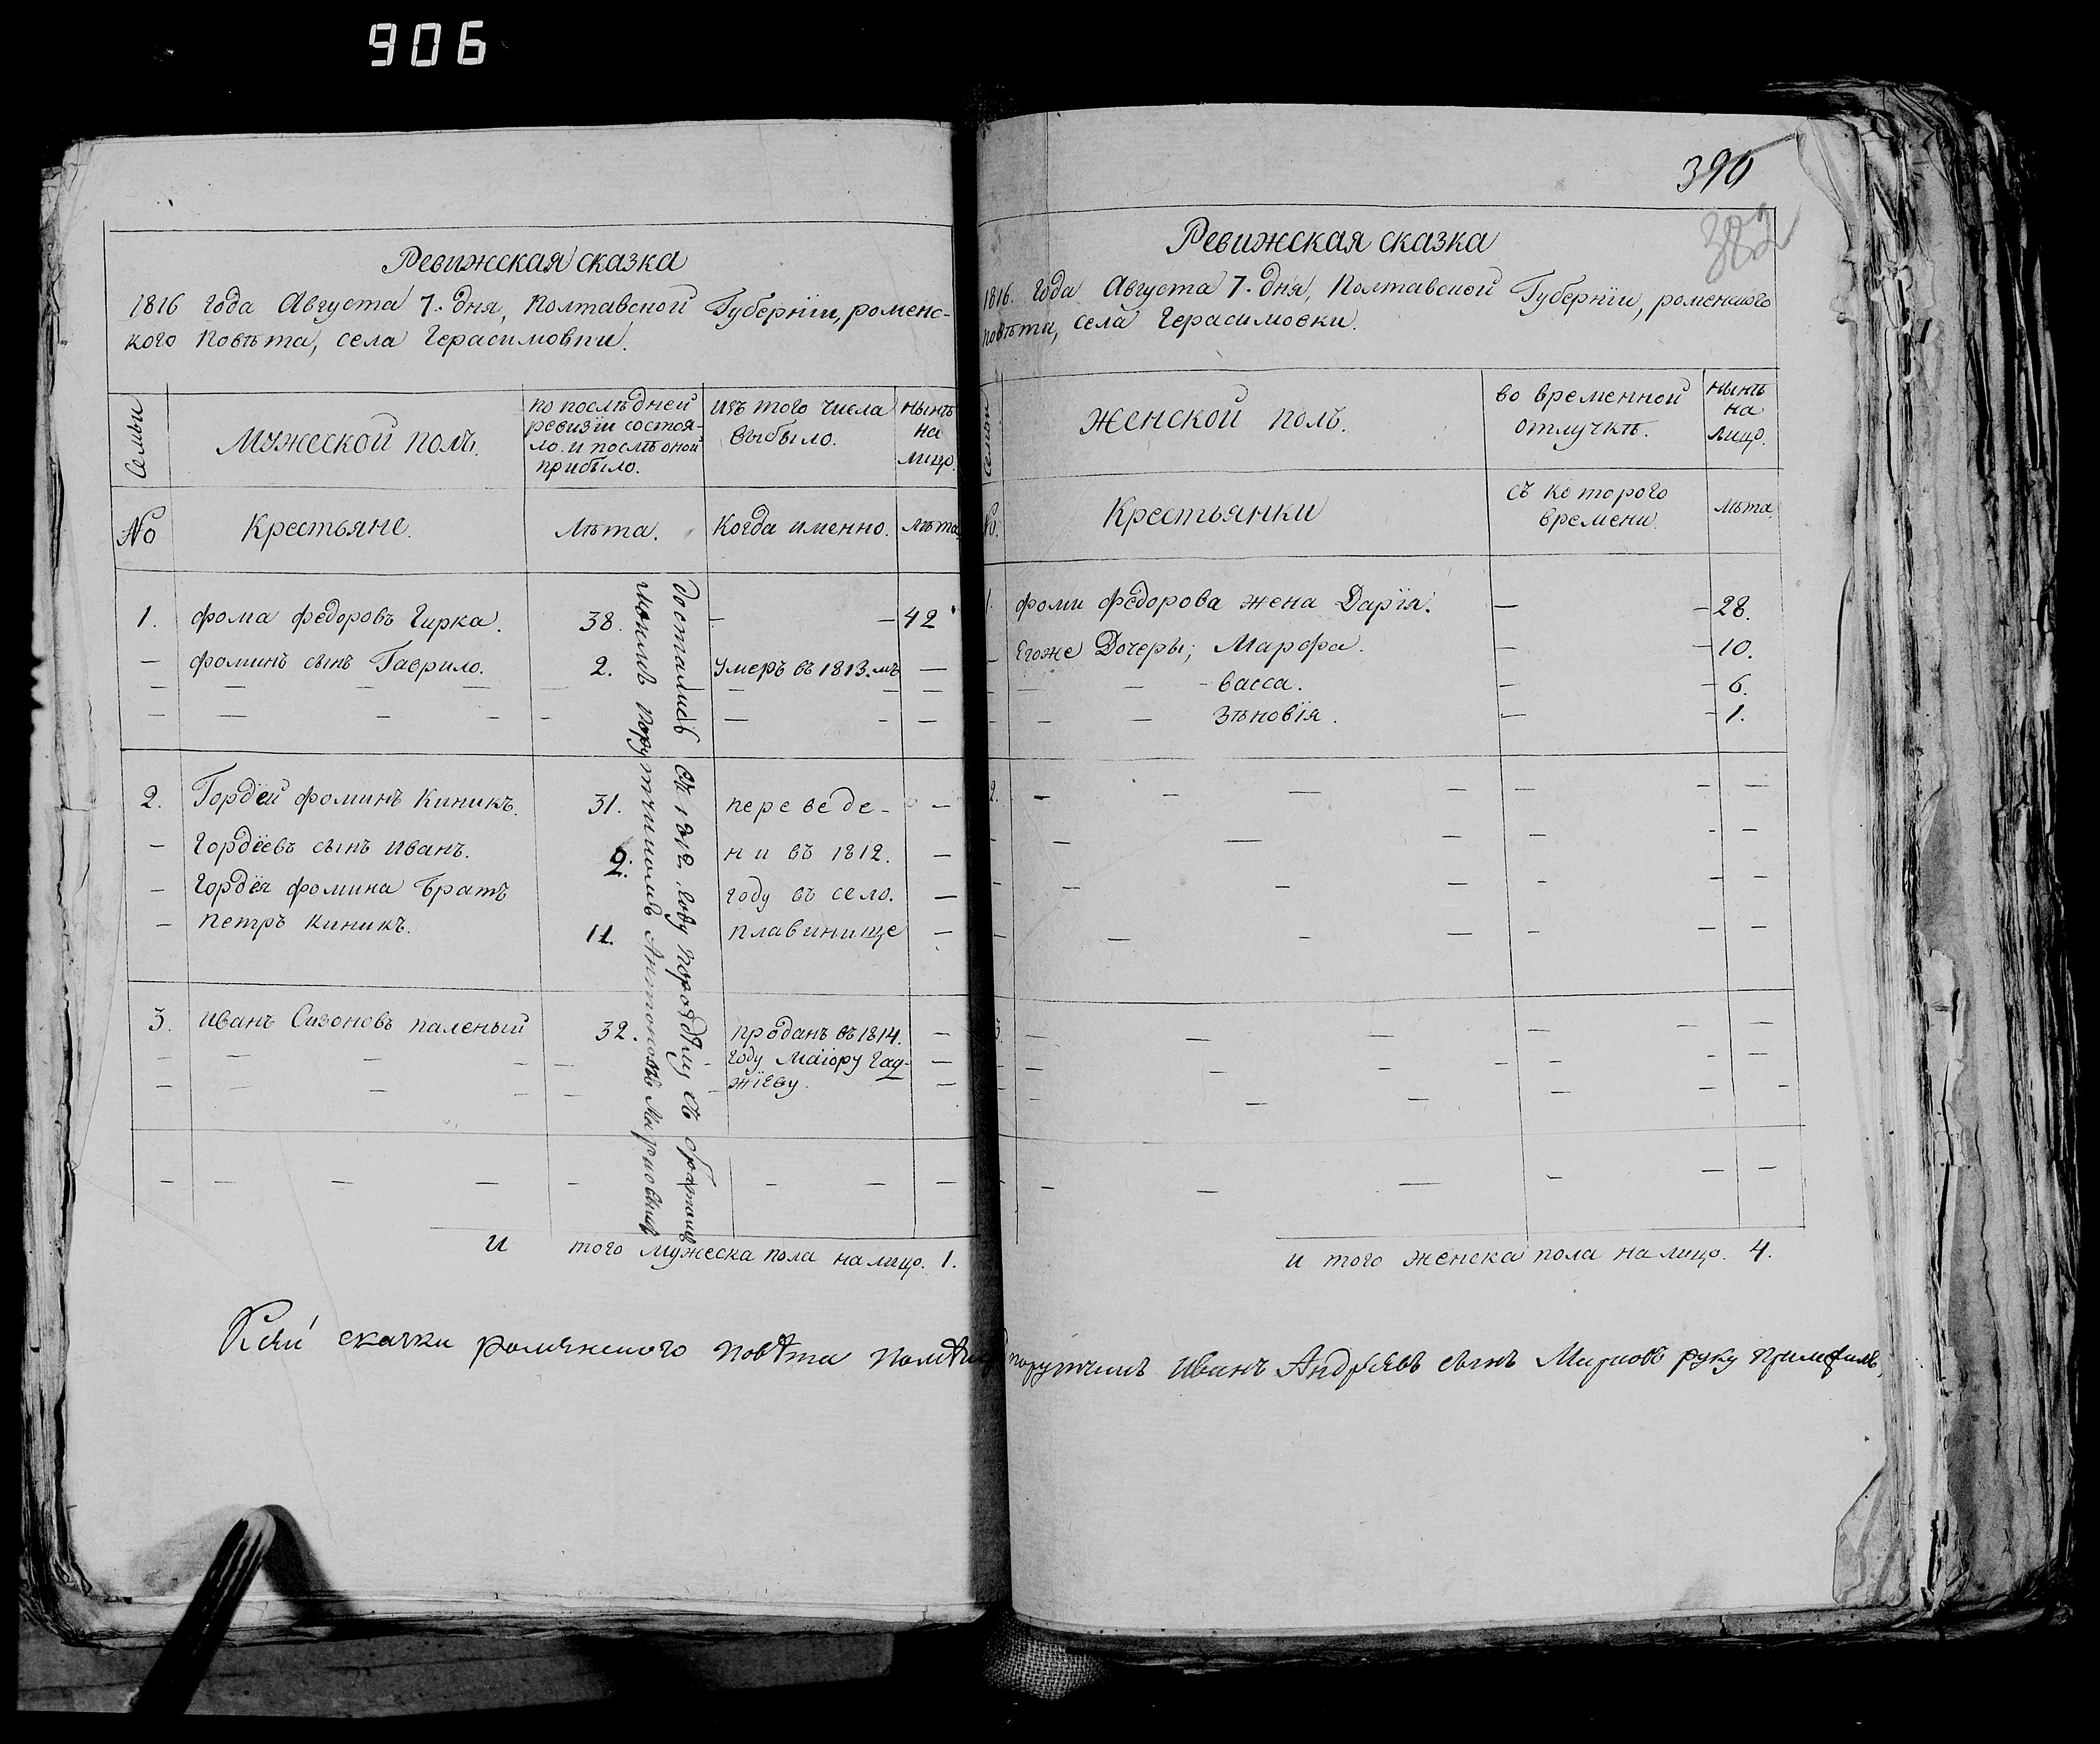 906
Ревижская сказка
1816 года Августа 7. дня, Полтавской Губернїи, роменс-
кого повѣта, села Герасимовки.
Семьи
Мужеской полъ.
по послѣдней
ревизїи состоя-
ло. и послѣ оной
прибыло.
изъ того числа
выбыло.
нынѣ
на
лицо.
№
Крестьяне.
Лѣта.
Когда именно.
лѣта
1. фома федоровъ Гирка. 38. — — 42
— фоминъ сынъ Гаврило. 2. умеръ въ 1813.мъ —
2. Гордѣй фоминъ Киникъ. 31. переведе- —
— Гордѣевъ сынъ иванъ. 2. ни въ 1812. —
— Гордѣя фомина братъ году въ село. —
— петръ киникъ. 11. плавинище —
3. иванъ Сизоновъ паленый 32. проданъ въ 1814. —
году маїору Гад- —
жїеву. —
достались въ 1812 году по роздѣлу съ братомъ
моимъ порутчикомъ Антономъ Марковымъ
и того мужеска пола на лицо. 1.
390
382
Ревижская сказка
1816. года Августа 7. дня, Полтавской Губернїи, роменского
повѣта, села Герасимовки.
Семьи
Женской полъ.
во временной
отлучкѣ.
нынѣ
на
лицо.
№.
Крестьянки
съ которого
времени.
лѣта.
1. фоми федорова жена Дарїя. — — 28.
— Егоже Дочеры; Марфа. — — 10.
— — — васса. — — 6.
— — Зѣновїя. — — 1.
2.
3.
и того женска пола на лицо. 4.
К сей скаски роменского повѣта помѣщ порутчикъ Иванъ Андрѣевъ сынъ Марковъ руку приложилъ,